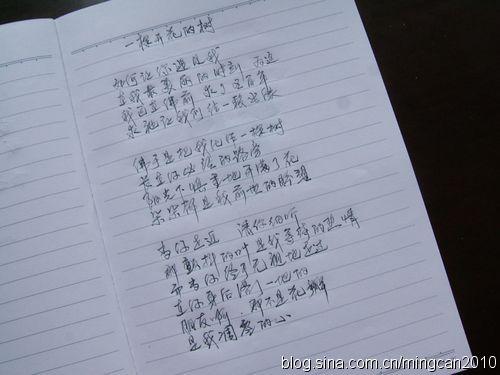 一棵开花的树
如何让你遇见我
在我最美丽的时刻 为这
我已在佛前 求了五百年
求他让我们结一段尘缘
佛于是把我化作一棵树
长在你必经的路旁
阳光下慎重地开满了花
朵朵都是我前世的盼望
当你走近 请你细听
那颤抖的叶是我等待的热情
而当你终于无视地走过
在你身后落了一地的
朋友啊 那不是花瓣
是我凋零的心
blog.sina.com.cn/mingcan2010